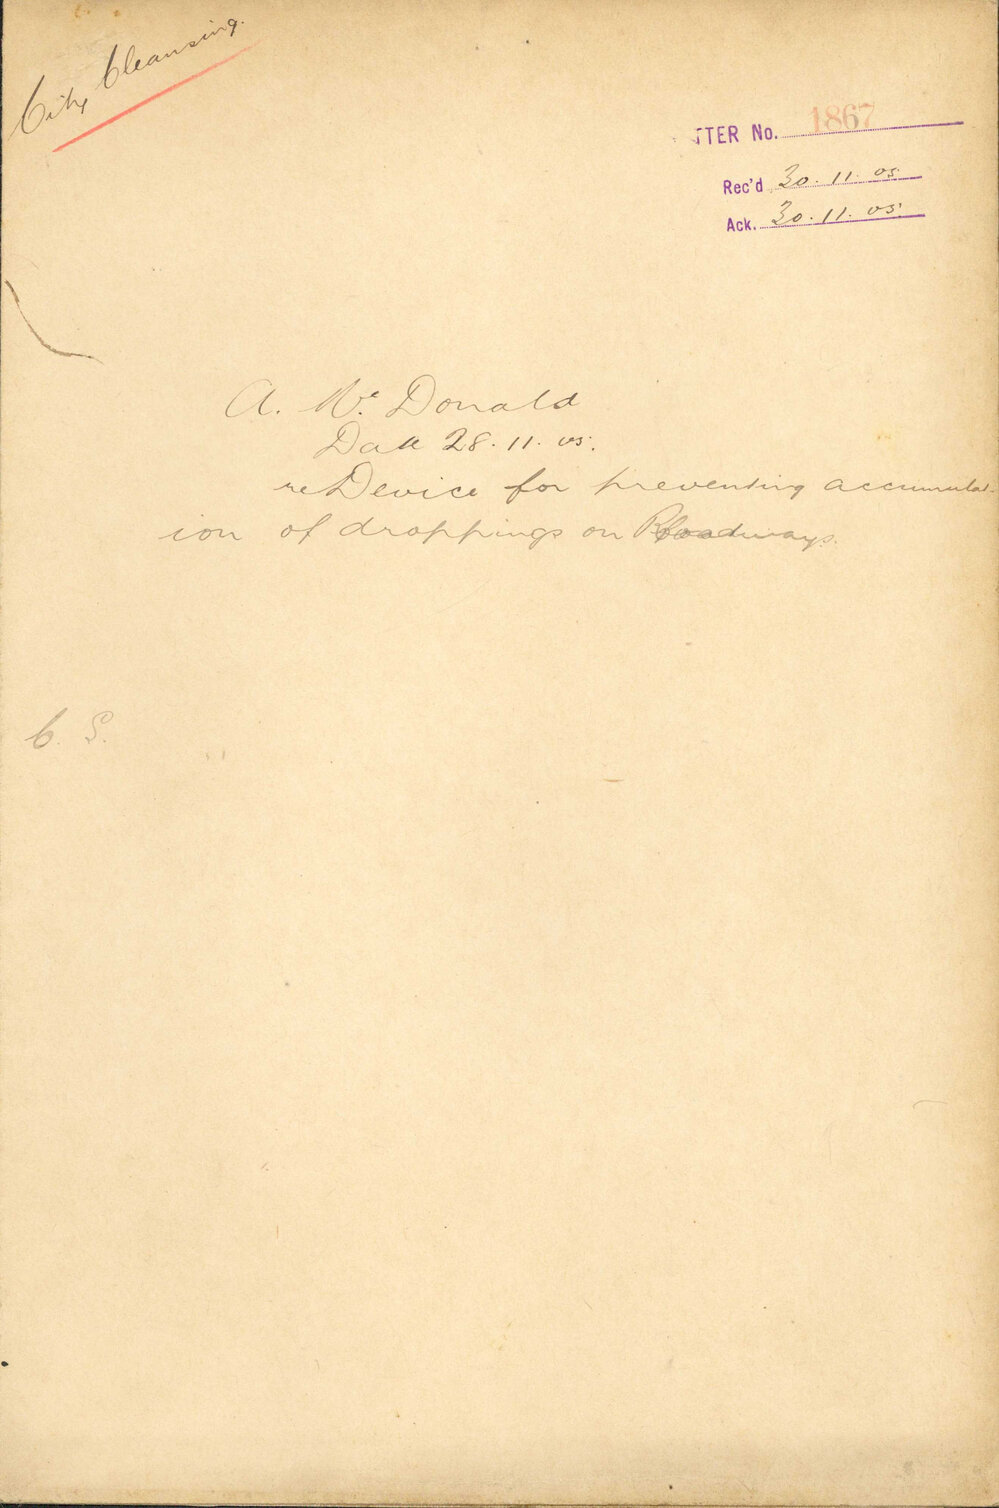 City Cleansing.
TTER No. 1867
Rec'd 30.11.05
Ack. 30.11.05.
A. Mc Donald
Date 28.11.05.
re Device for preventing accumulat-
ion of droppings on Roadways.
C. S.